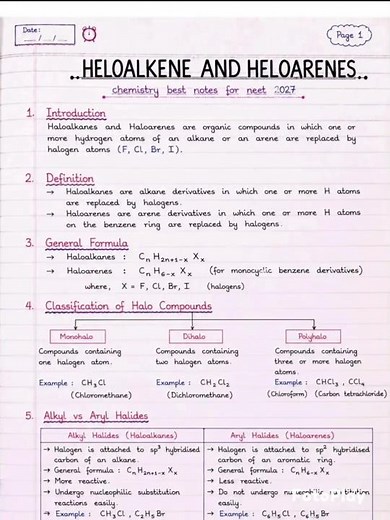 Date:
__ / __ / __
Page 1
HELOALKENE AND HELOARENES
chemistry best notes for neet 2027
1. Introduction
Haloalkanes and Haloarenes are organic compounds in which one or
more hydrogen atoms of an alkane or an arene are replaced by
halogen atoms (F, Cl, Br, I).
2. Definition
→ Haloalkanes are alkane derivatives in which one or more H atoms
are replaced by halogens.
→ Haloarenes are arene derivatives in which one or more H atoms
on the benzene ring are replaced by halogens.
3. General Formula
→ Haloalkanes : CₙH₂ₙ₊₁₋ₓXₓ
→ Haloarenes : CₙH₆₋ₓXₓ (for monocyclic benzene derivatives)
where, X = F, Cl, Br, I (halogens)
4. Classification of Halo Compounds
Monohalo
Compounds containing
one halogen atom.
Example : CH₃Cl
(Chloromethane)
Dihalo
Compounds containing
two halogen atoms.
Example : CH₂Cl₂
(Dichloromethane)
Polyhalo
Compounds containing
three or more halogen
atoms.
Example : CHCl₃ , CCl₄
(Chloroform) (Carbon tetrachloride)
5. Alkyl vs Aryl Halides
Alkyl Halides (Haloalkanes)
→ Halogen is attached to sp³ hybridised
carbon of an alkane.
→ General formula : CₙH₂ₙ₊₁₋ₓXₓ
→ More reactive.
→ Undergo nucleophilic substitution
reactions easily.
→ Example : CH₃Cl , C₂H₅Br
Aryl Halides (Haloarenes)
→ Halogen is attached to sp² hybridised
carbon of an aromatic ring.
→ General formula : CₙH₆₋ₓXₓ
→ Less reactive.
→ Do not undergo nucleophilic substitution
easily.
→ Example : C₆H₅Cl , C₆H₅Br